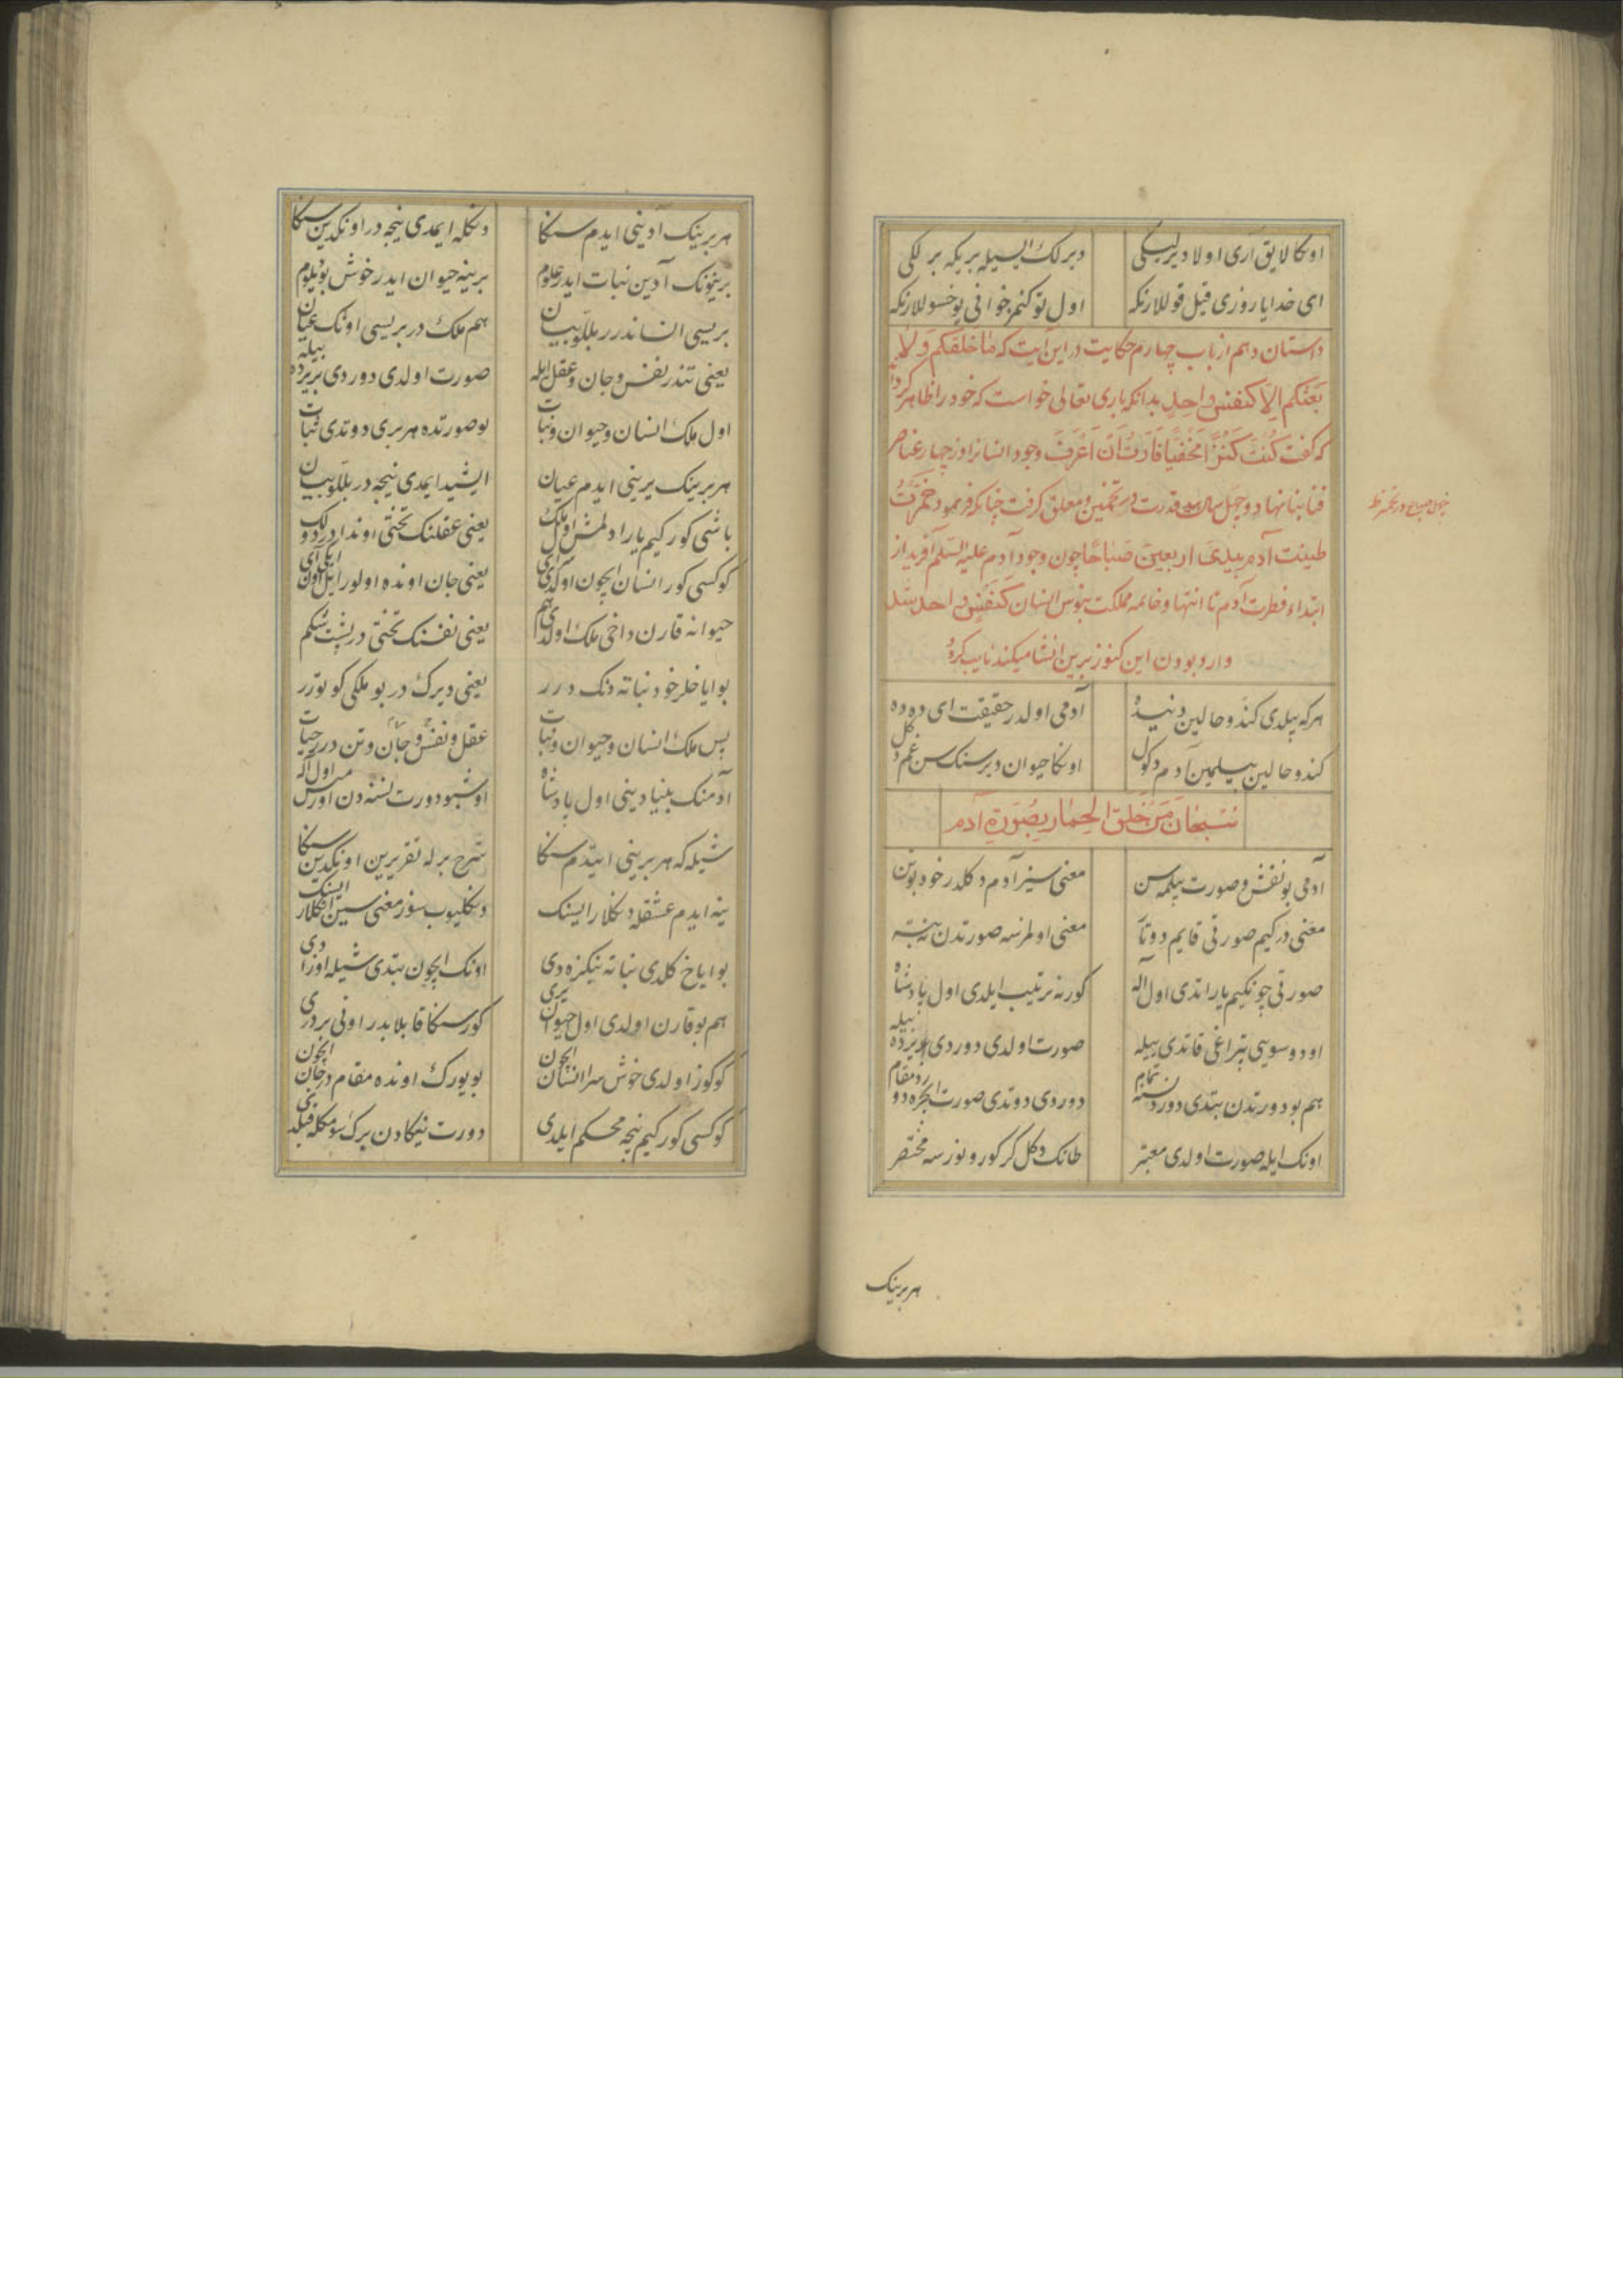 اونكا لایق آری اولا دیرلیكی دیرلك ایسیله بریكه برلكی
ای خدایا روزی قیل قوللارنكه اول توكنمز خوانی یوخسوللارنكه
داستان دهم از باب چهارم حكایت در این آیت كه ما خلقكم ولا
بعثكم الا كنفس واحد بدانكه باری تعالی خواست كه خود را ظاهر كردا
كه كفت كنت كنزا مخفیا فاردت ان اعرف وجود انسانرا از چهار عناصر
بنا نهاد و چهل سال قدرت در تخمین و معلق كرفت چنانكه فرمود خمرت
طینت آدم بیدی اربعین صباحا چون وجود آدم علیه السلم آفرید از
ابتداء فطرت آدم تا انتها و خاتمه مملكت نفوس انسان كنفس واحد
وارد بودن این كنوز برین انشا میكند
هركه بیلدی كندو حالین آدمی اولدر حقیقت ای دده
كندو حالین بیلمین آدم دكول اونكا حیوان دیرسنك سن غم دكل
سبحان من خلق الحمار بصورة آدم
آدمی بو نفش و صورت بیلمه سن معنی سیز آدم دكلدر خود بوتن
معنی در كیم صورتی قایم دوتا معنی اولمزسه صورتدن نه بته
صورتی چونكیم یاراتدی اول اله كور نه ترتیب ایلدی اول پادشاه
اود و سویی تپراغی قاتدی بیله صورت اولدی دوردی بیرده بیله
هم بو دورتدن بتدی دورد نسنه تمام دوروی دوتدی صورت ایچره دورد مقام
اونك ایله صورت اولدی معتبر طانك دكل كر كورونورسه مختصر
هر برینك
هر برینك آدینی ایدم سنكا دنكله ایمدی نیجه در اونكدین سنكا
برینونك آدین نبات ایدر علوم برینه حیوان ایدر خوش بو بیلوم
بریسی انساندرر بللو بیان هم ملك در بریسی اونك عیان
یعنی تندر نفس و جان و عقل ایله صورت اولدی دوردی بربرده بیله
اول ملك انسان و حیوان و نبات بو صورتده هر بری دوتدی ثبات
هر برینك یرینی ایدم عیان ایشید ایمدی نیجه در بللو بیان
باشی كور كیم یارادلمش اول ملك یعنی عقلنك تختی اوندادر
كوكسی كور انسان ایچون اولدی یعنی جان اونده اولور
حیوانه قارن داخی ملك اولدی هم یعنی نفسنك تختی در پشت شكم
بو ایاخلر خود نباته دنك درر یعنی دیرك در بو ملكی كوتورر
پس ملك انسان و حیوان و نبات عقل و نفس و جان و تن درر حیات
آدمنك بنیادینی اول پادشاه اوشبو دورت نسنه دن اورس اول اله
شیله كه هر برینی ایتدم سنكا شرح برله تقریرین اونكدین سنكا
ینه ایدم عشقله دنكلار ایسنك دنكلیوب سوز معنی سین انكلار ایسنك
بو ایاخ كلدی نباته بنكزه دی اونك ایچون بتدی شیله اوزادی
هم بو قارن اولدی اول حیوان یری كور سنكا قابلایدر اونی بر دری
كوكوز اولدی خوش سرا انسان ایچون بو یورك اونده مقام در جان ایچون
كوكسی كور كیم نیجه محكم ایلدی دورت یكادن برك سومكله قیلدی